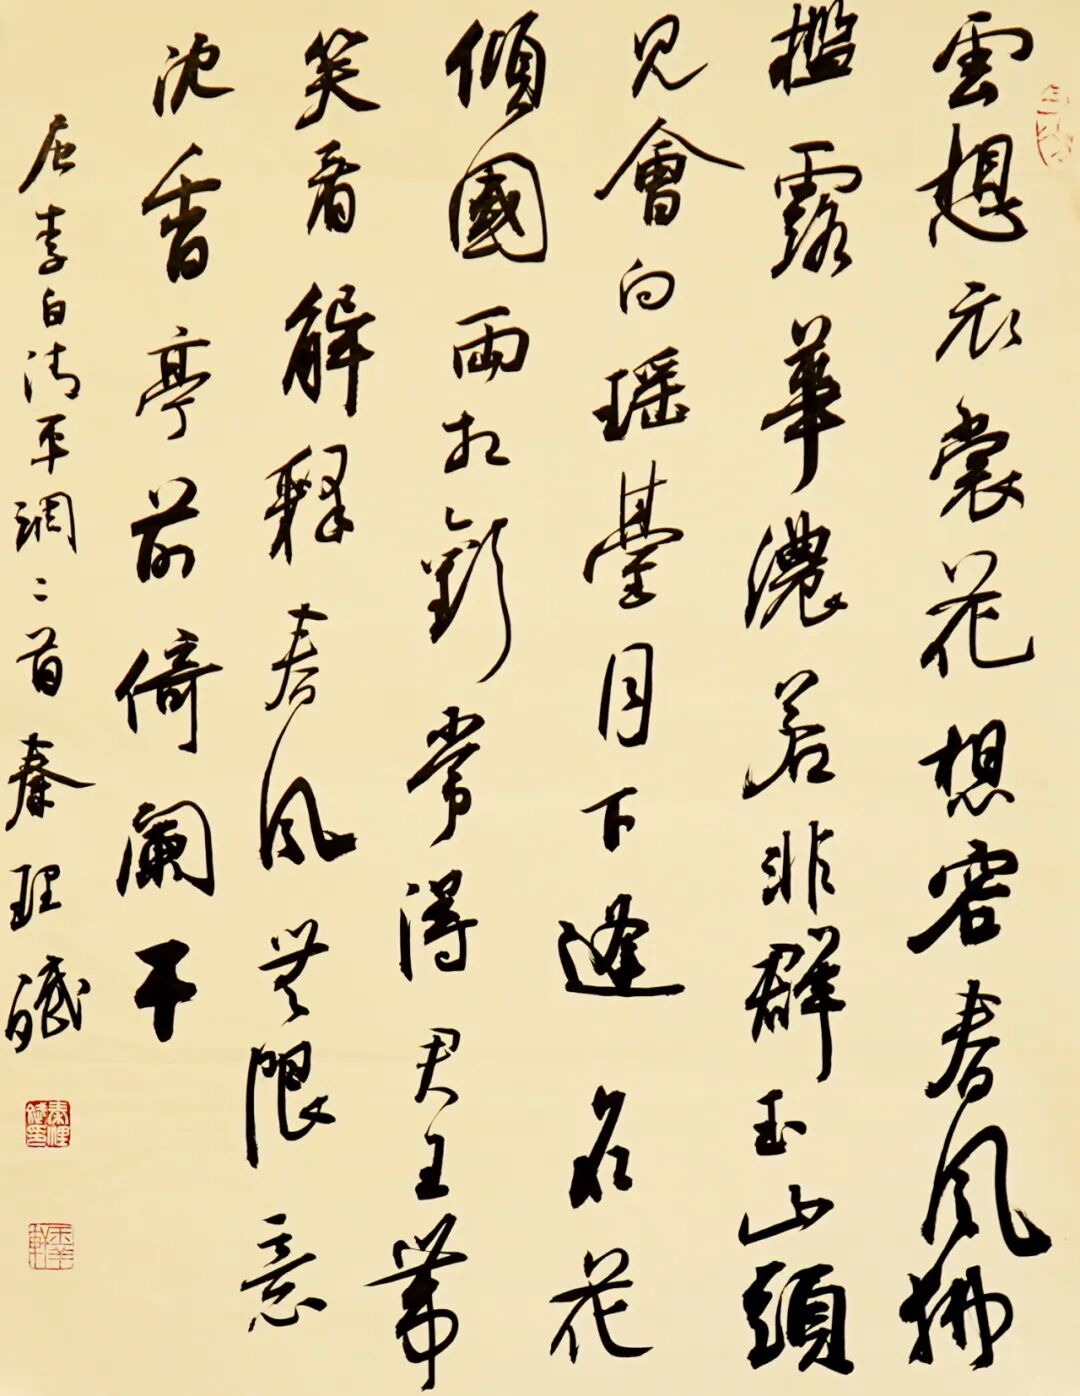 雲想衣裳花想容春風拂
檻露華濃若非群玉山頭
見會向瑶臺月下逢名花
傾國兩相歡常得君王帶
笑看解釋春風無限意
沈香亭前倚闌干
李白清平調二首秦理斌